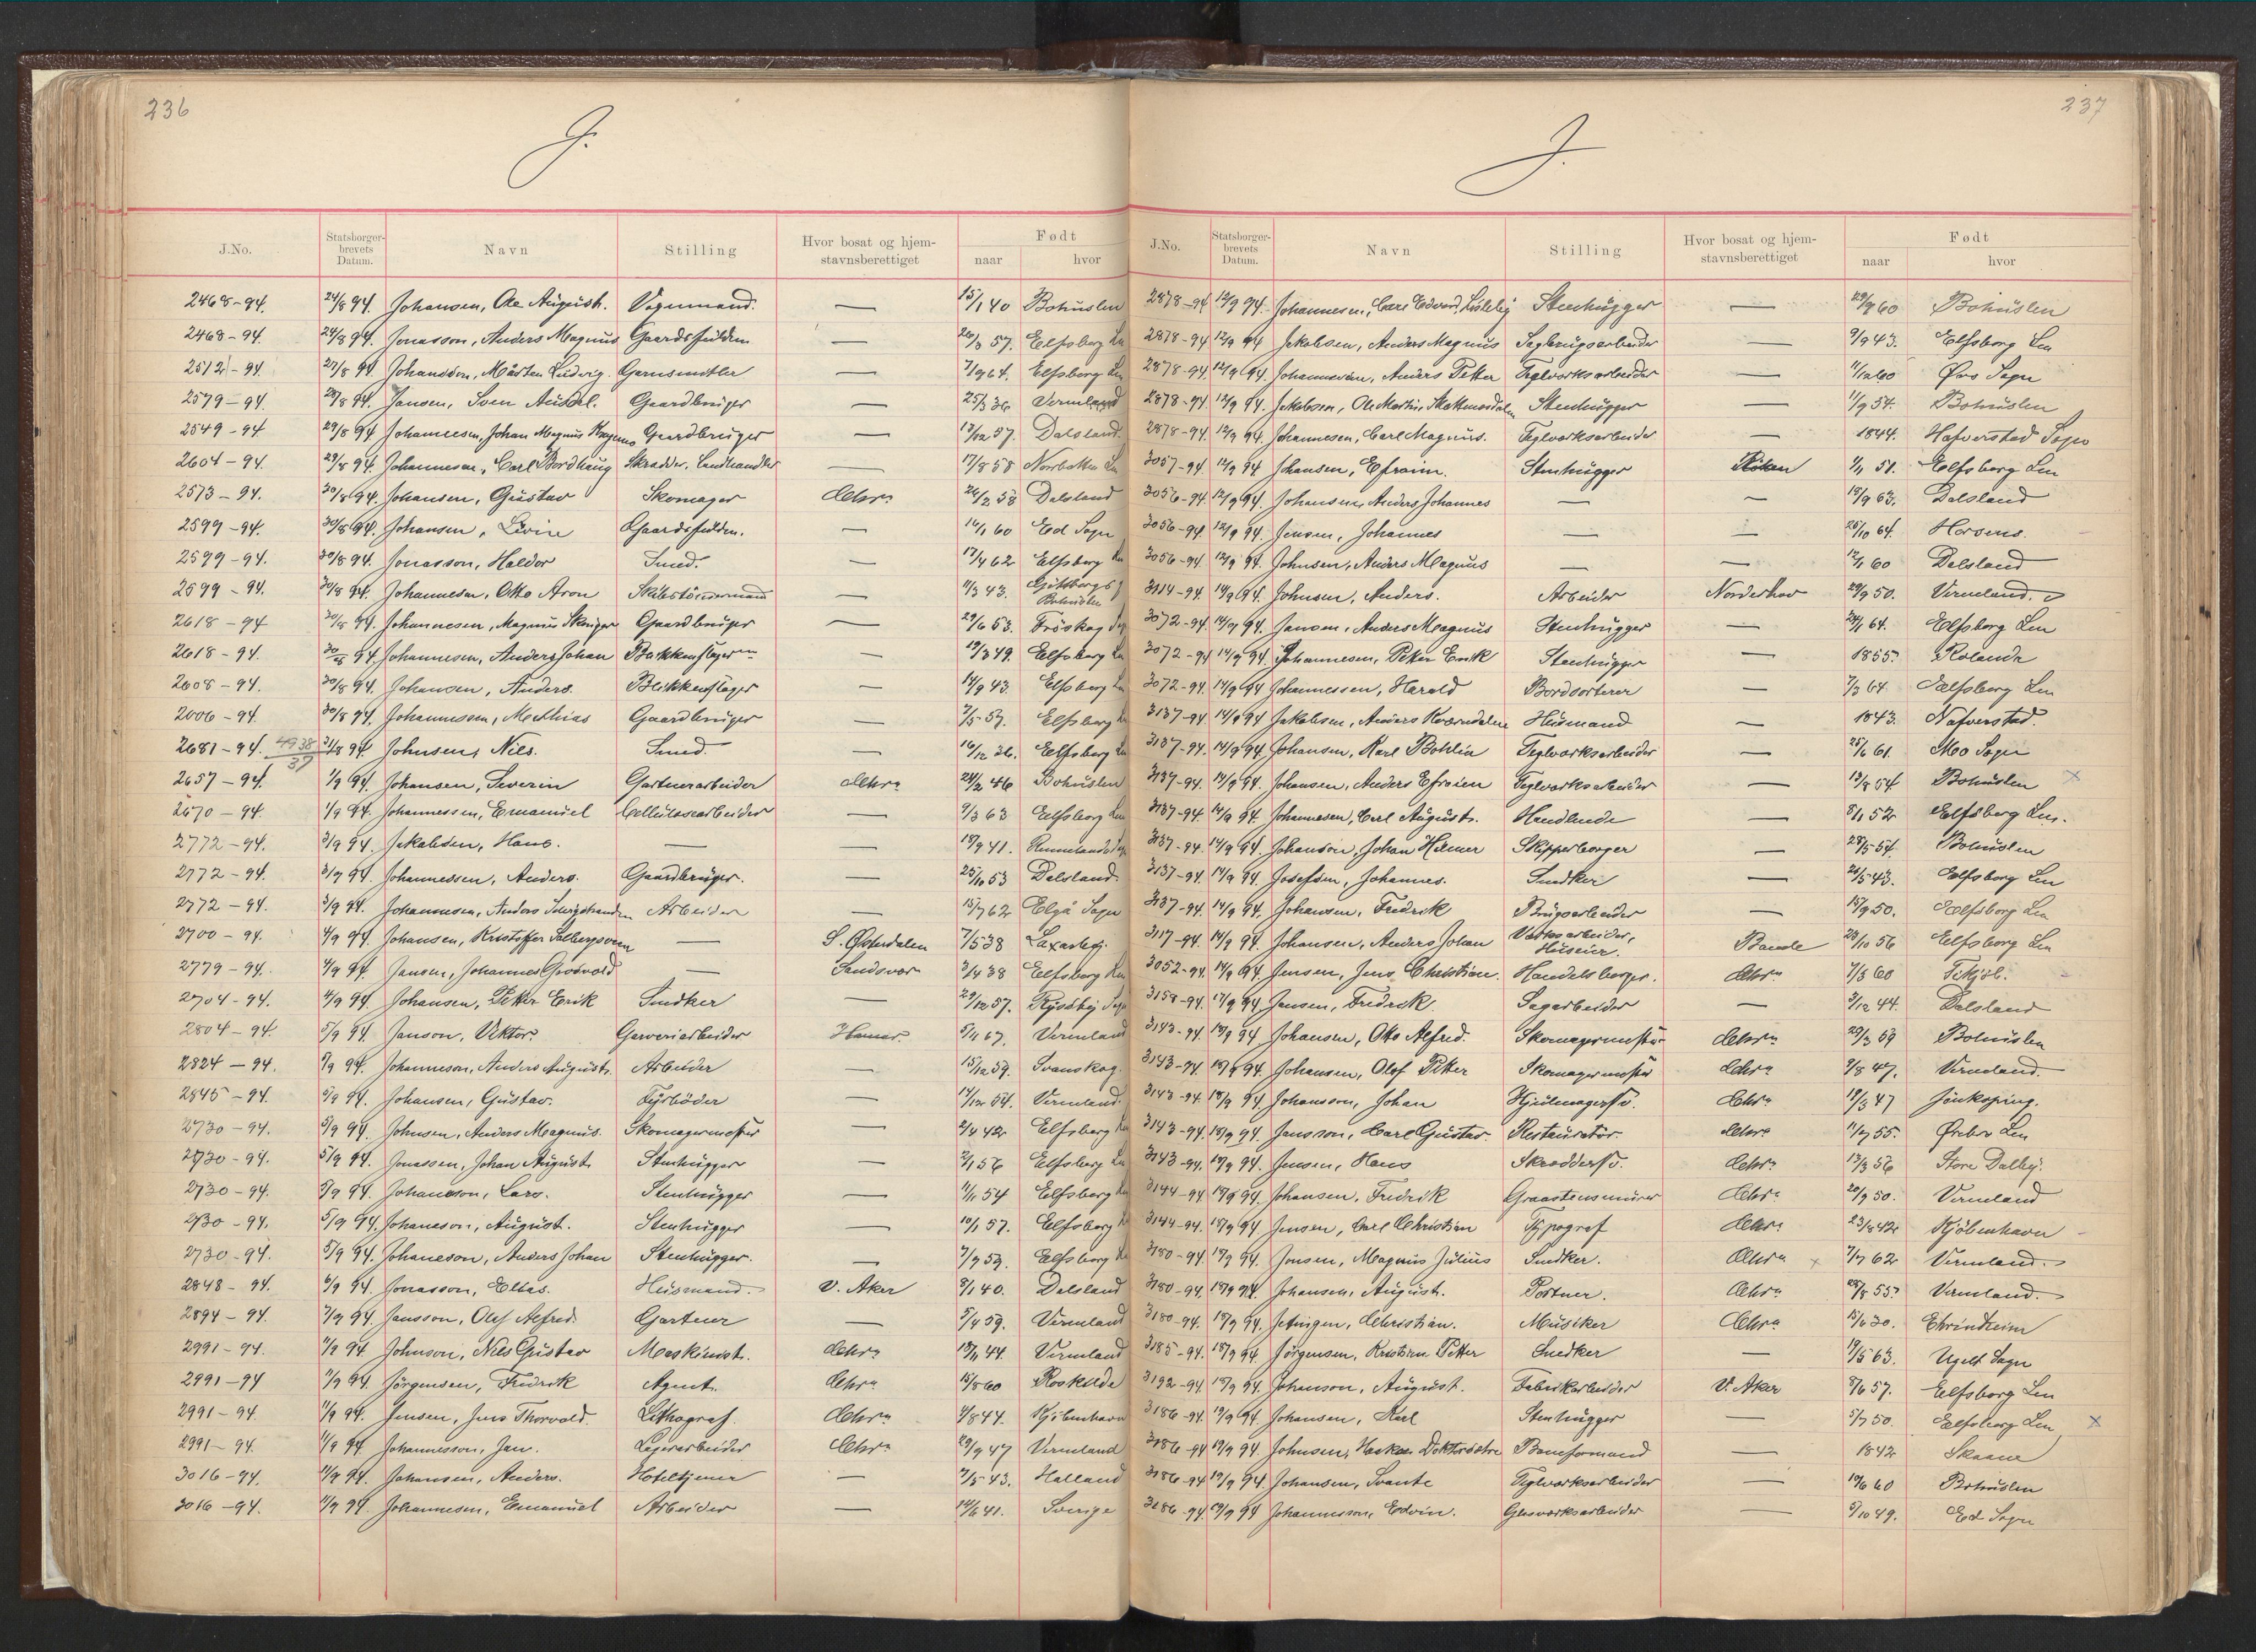 236
J.
J.No. Statsborger-brevets Datum. Navn Stilling Hvor bosat og hjem-stavnsberettiget Født naar hvor
2468-94. 24/8 94. Johansen, Ole August. Vognmand. — 15/1 40 Bohuslen
2468-94. 24/8 94. Jonasson, Anders Magnus Gaardsfulden — 57. Elfsborg Len
2512-94. 27/8 94. Johansson, Mårten Ludvig. — 64. Elfsborg Len
2579-94. 28/8 94. Jansen, Sven Gaardbruger — 25/3 36 Vermland
2549-94 29/8 94 Johannesen, Johan Magnus Gaardbruger — 13/12 57. Dalsland.
2604-94. 29/8 94. Johannesen, Carl Skrædder, Landhandler — 17/8 58
2573-94. 30/8 94. Johansen, Gustav Skomager Chra 26/2 58 Dalsland
2599-94. 30/8 94. Johansen, Gaardsfulden. — 14/1 60 Ed Sogn
2599-94. 30/8 94. Jonasson, Haldor Smed. — 62 Elfsborg Len
2599-94. 30/8 94. Johannesen, Otto Aron — 11/3 43. Bohuslen
2618-94 30/8 94. Johannesen, Magnus Gaardbruger — 29/6 53.
2618-94. 30/8 94. Johannesen, Anders Johan — 19/3 49. Elfsborg Len
2608-94. 30/8 94. Johansen, Anders. Blikkenslager — 14/9 43. Elfsborg Len
2606-94. 30/8 94. Johannesen, Mathias Gaardbruger — 57. Elfsborg Len
2681-94. 4938/37 31/8 94 Johnsen, Nils. Smed. — 16/12 36. Elfsborg Len
2657-94. 1/9 94. Johansen, Severin Gartnerarbeider Chra 24/2 46 Bohuslen
2670-94. 1/9 94. Johannessen, Emanuel Cellulosearbeider — 9/3 63 Elfsborg Len
2772-94. 3/9 94. Jakobsen, Hans. — — 18/9 41.
2772-94. 3/9 94. Johannessen, Anders. Gaardbruger. — 25/10 53 Dalsland.
2772-94. 3/9 94. Johannesen, Anders Arbeider — 62 Elgå Sogn
2700-94. 4/9 94. Johansen, Kristoffer — S. Østerdalen 7/5 38
2779-94. 4/9 94. Jansen, Johannes Grosvold — Sandsvær 3/4 38 Elfsborg Len
2704-94. 4/9 94. Johansen, Peter Erik Snedker — 29/12 57.
2804-94. 5/9 94. Janson, Viktor. Garveriarbeider Hamar. 5/11 67. Vermland
2824-94. 94. Johannesen, Anders August. Arbeider — 15/12 59. Svanskog.
2845-94. 5/9 94. Johansen, Gustav. Fyrbøder — 14/12 54. Vermland.
2730-94. 5/9 94. Johnsen, Anders Magnus. Skomagermester — 2/4 42 Elfsborg Len
2730-94. 5/9 94. Jonassen, Johan August. Stenhugger — 56 Elfsborg Len
2730-94. 5/9 94. Johansson, Lars. Stenhugger — 54 Elfsborg Len
2730-94. 5/9 94. Johansson, August. Stenhugger — 10/1 57. Elfsborg Len
2730-94. 5/9 94. Johansson, Anders Johan Stenhugger. — 59. Elfsborg Len
2848-94. 6/9 94. Jonasson, Elias. Husmand. V. Aker 8/1 40. Dalsland
2894-94. 7/9 94. Jansson, Olof Alfred. Gartner — 5/4 59. Vermland
2991-94. 11/9 94 Johnson, Nils Gustav Maskinist. Chra 44. Vermland
2991-94 11/9 94. Jörgensen, Fredrik Agent. Chra 15/8 60 Roskilde
2991-94. 11/9 94. Jensen, Jens Thorvald. Lithograf. Chra 4/8 44. Kjöbenhavn
2991-94. 11/9 94. Johannesson, Jan. Lagerarbeider Chra 29/9 47 Vermland
3016-94. 11/9 94. Johansen, Anders. Hoteltjener — 43. Halland
3016-94. 11/9 94. Johannesen, Emanuel Arbeider — 14/6 41. Sverige
237
J.
J.No. Statsborger-brevets Datum. Navn Stilling Hvor bosat og hjem-stavnsberettiget Født naar hvor
2878-94 12/9 94. Johannesen, Carl Edvard, Stenhugger — 60 Bohuslen
2878-94 12/9 94 Jakobsen, Anders Magnus Sagbrugsarbeider — 9/9 43. Elfsborg Len
2878-94. 12/9 94. Johannesen, Anders Petter Teglværksarbeider — 11/12 60 Sogn
2878-94. 12/9 94. Jakobsen, Ole Martin Stenhugger — 11/9 54. Bohuslen
2878-94. 12/9 94. Johannesen, Carl Magnus. Teglværksarbeider — 1844. Hafverstad Sogn
3057-94. 12/9 94 Johansen, Efraim. Stenhugger Röken 51. Elfsborg Len
3056-94. 12/9 94. Johansen, Anders Johannes — — 18/9 63. Dalsland
3056-94. 12/9 94. Jensen, Johannes — — 26/10 64. Horsens.
3056-94 12/9 94. Johnsen, Anders Magnus — — 60 Dalsland
3114-94. 14/9 94. Johnsen, Anders. Arbeider Norderhov 29/9 50. Vermland.
3072-94. 14/9 94. Janson, Anders Magnus Stenhugger — 24/1 64. Elfsborg Len
3072-94 14/9 94. Johannesen, Peter Erik Stenhugger — 1855.
3072-94. 14/9 94 Johannessen, Harald Bordsorterer — 7/3 64. Elfsborg Len
3137-94 14/9 94. Jakobsen, Anders Kværndalen Husmand — 1843. Nafverstad.
3137-94. 14/9 94 Johansen, Karl Bohlin Teglværksarbeider — 25/6 61. Mo Sogn
3137-94. 14/9 94. Johansen, Anders Efraim Teglværksarbeider — 13/8 54 Bohuslen ×
3137-94. 14/9 94. Johannesen, Carl August. Handlende — 8/1 52 Elfsborg Len.
3137-94. 14/9 94. Johanson, Johan Hilmer Skipperborger — 28/5 54. Bohuslen
3137-94. 14/9 94. Josefsen, Johannes. Snedker — 26/5 43. Elfsborg Len
3137-94. 14/9 94. Johansen, Fredrik Brugsarbeider — 15/9 50. Elfsborg Len
3117-94. 14/9 94. Johansen, Anders Johan Værksarbeider, Huseier. Bamle 23/10 56 Elfsborg Len
3052-94. 14/9 94. Jensen, Jens Christian. Handelsborger. Chra 7/3 60
3158-94. 17/9 94 Jansen, Fredrik. Sagarbeider — 3/12 44. Dalsland
3143-94. 18/9 94 Johansen, Otto Alfred. Skomagermester Chra 29/3 59 Bohuslen
3143-94. 18/9 94. Johansen, Olof Petter Skomagermester Chra 9/8 47. Vermland.
3143-94. 18/9 94. Johansson, Johan Hjulmagersv. Chra 19/3 47 Jönköping.
3143-94. 18/9 94. Jansson, Carl Gustav. Restauratör. Chra 55. Örebro Len
3143-94. 18/9 94. Jensen, Hans Skræddersv. Chra 13/3 56 Store Dalby.
3144-94 18/9 94. Johansen, Fredrik Graastensmurer Chra 20/9 50. Vermland
3144-94. 18/9 94. Jensen, Carl Christian Typograf Chra 23/8 42 Kjöbenhavn
3180-94 18/9 94. Jonsen, Magnus Julius Snedker. Chra × 62 Vermland.
3180-94. 18/9 94. Johansen, August. Portner. Chra 28/8 55 Vermland.
3180-94. 18/9 94. Christian. Musiker Chra 15/6 30.
3185-94. 18/9 94 Jörgensen, Kristian Petter Snedker — 19/5 63. Ugelt Sogn
3192-94. 18/9 94. Johanson, August. Fabrikarbeider V. Aker 8/6 57. Elfsborg Len
3186-94. 19/9 94. Johansen, Karl Stenhugger — 50. Elfsborg Len ×
3186-94 19/9 94. Johnsen, Banesformand — 1842 Skaane
3186-94 19/9 94. Johansen, Svante Teglværksarbeider — 60 Bohuslen
3186-94. 19/9 94 Johannesson, Edvin. Glasværksarbeider — 5/10 49. Ed Sogn